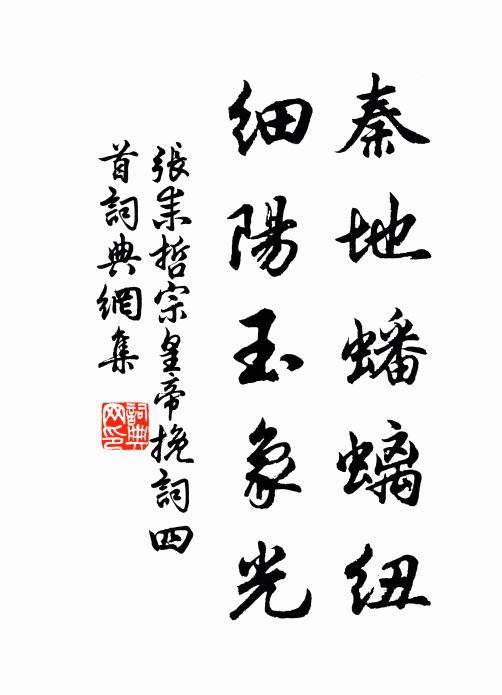 秦地蟠螭纽
细陽玉象光
張耒哲宗皇帝挽詞四
首詞典網集
詞典
网印